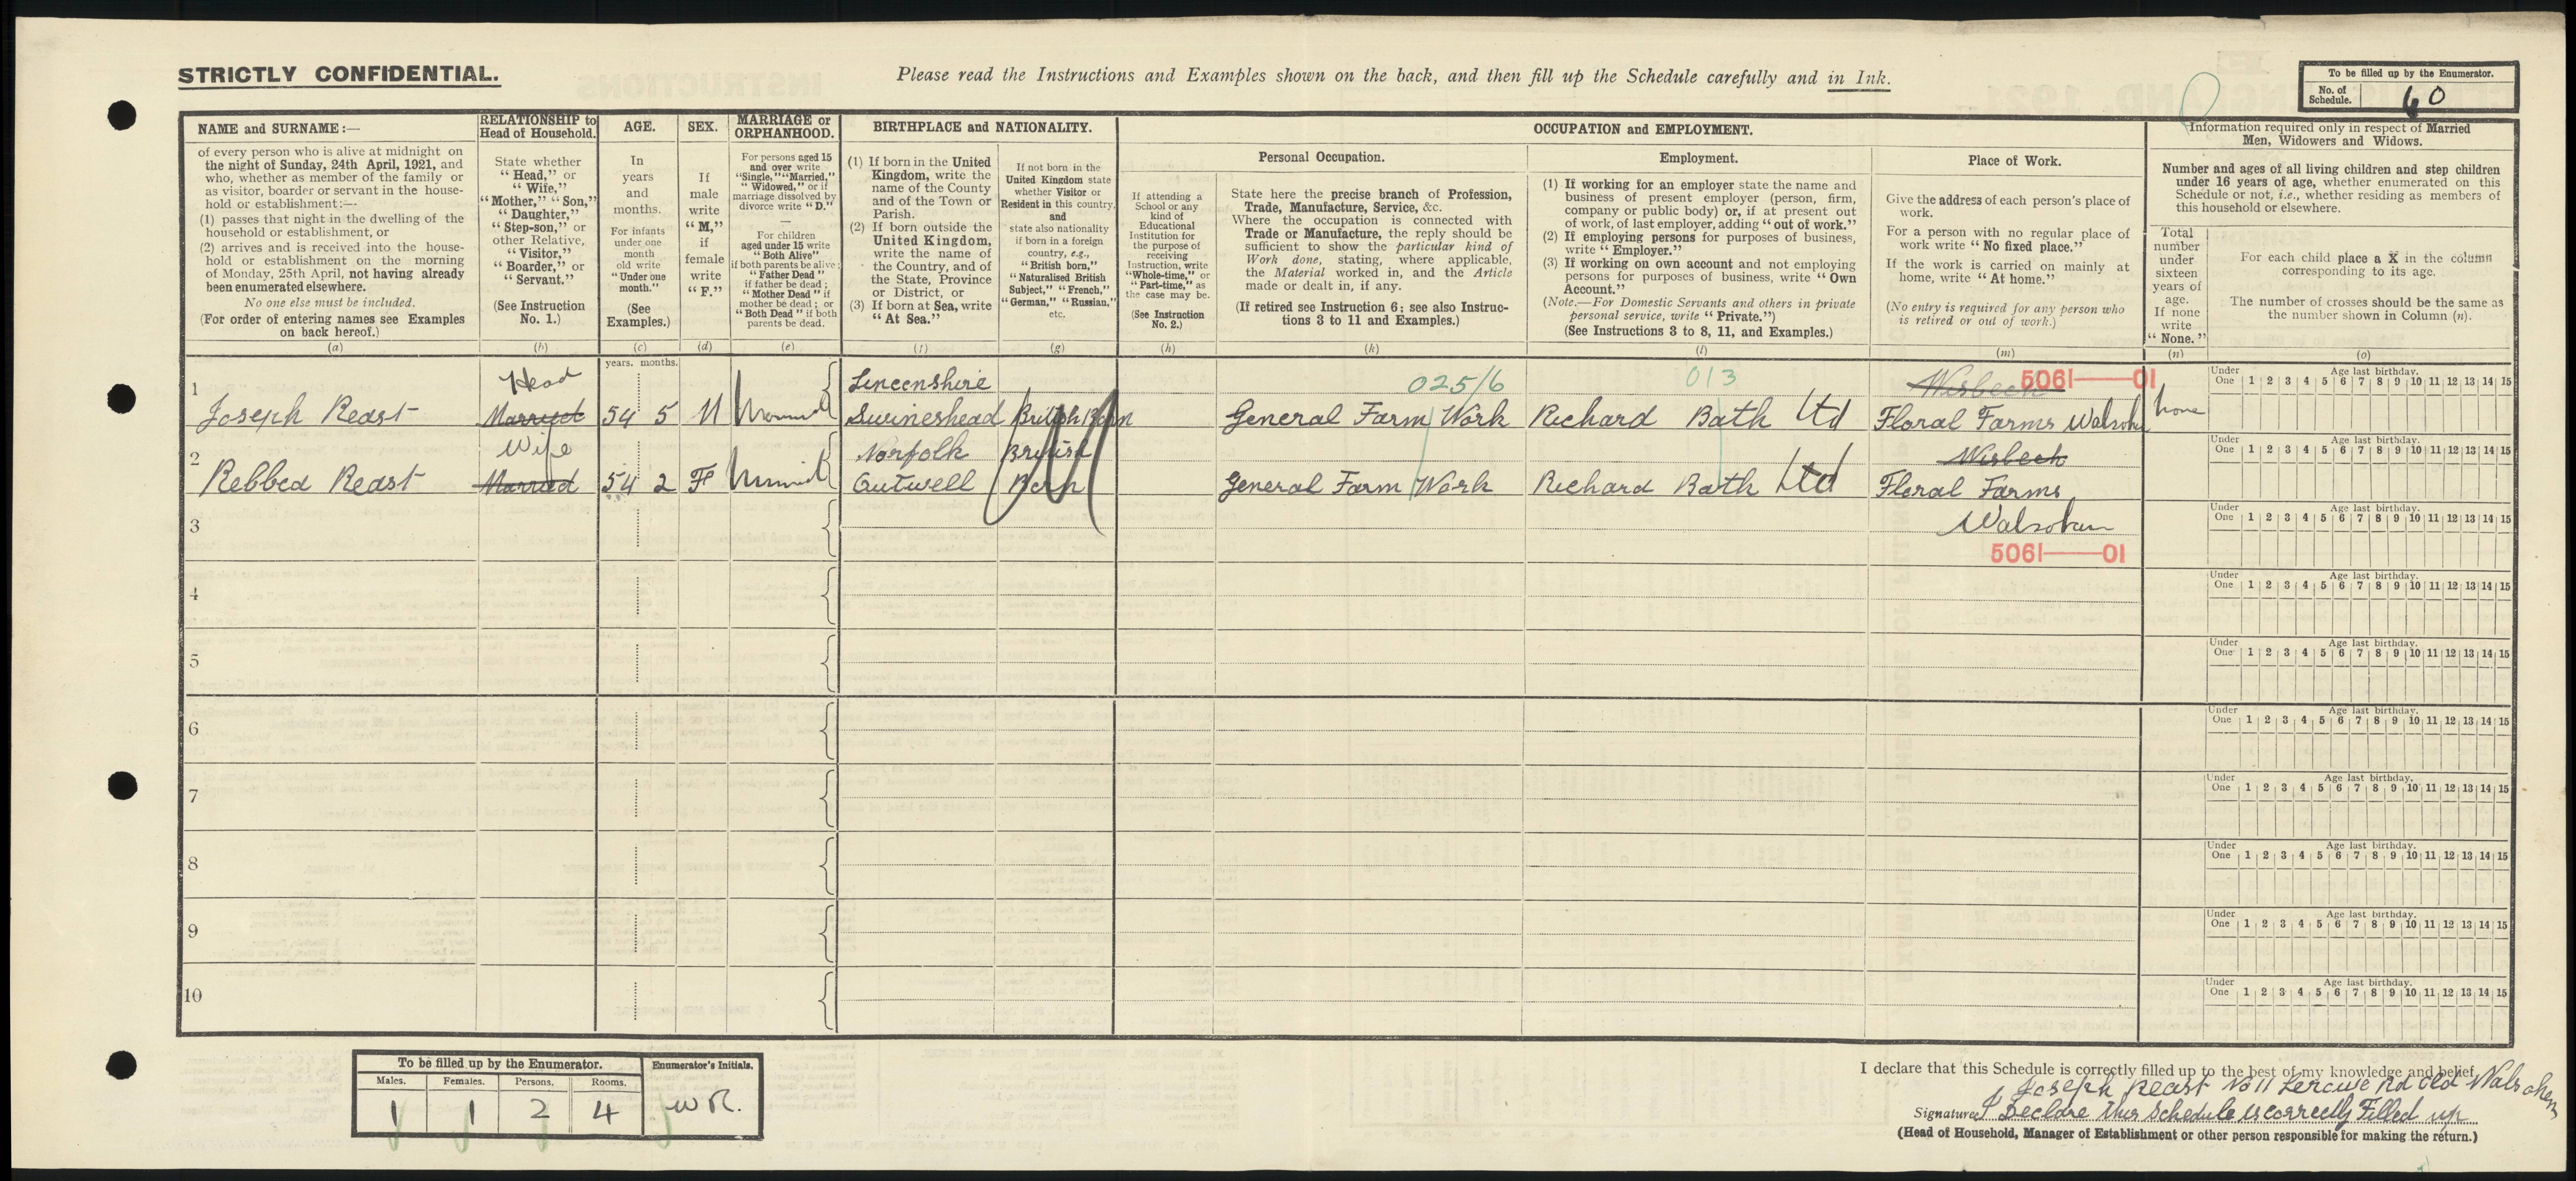 STRICTLY CONFIDENTIAL.
Please read the Instructions and Examples shown on the back, and then fill up the Schedule carefully and in Ink.
To be filled up by the Enumerator.
No. of Schedule. 60
NAME and SURNAME :—
of every person who is alive at midnight on
the night of Sunday, 24th April, 1921, and
who, whether as member of the family or
as visitor, boarder or servant in the house-
hold or establishment:—
(1) passes that night in the dwelling of the
household or establishment, or
(2) arrives and is received into the house-
hold or establishment on the morning
of Monday, 25th April, not having already
been enumerated elsewhere.
No one else must be included.
(For order of entering names see Examples
on back hereof.)
(a)
RELATIONSHIP to
Head of Household.
State whether
"Head," or
"Wife,"
"Mother," "Son,"
"Daughter,"
"Step-son," or
other Relative,
"Visitor,"
"Boarder," or
"Servant."
(See Instruction
No. 1.)
(b)
AGE.
In
years
and
months.
For infants
under one
month
old write
"Under one
month."
(See
Examples.)
(c)
SEX.
If
male
write
"M,"
if
female
write
"F."
(d)
MARRIAGE or
ORPHANHOOD.
For persons aged 15
and over write
"Single," "Married,"
"Widowed," or if
marriage dissolved by
divorce write "D."
—
For children
aged under 15 write
"Both Alive"
if both parents be alive;
"Father Dead"
if father be dead;
"Mother Dead" if
mother be dead; or
"Both Dead" if both
parents be dead.
(e)
BIRTHPLACE and NATIONALITY.
(1) If born in the United
Kingdom, write the
name of the County
and of the Town or
Parish.
(2) If born outside the
United Kingdom,
write the name of
the Country, and of
the State, Province
or District, or
(3) If born at Sea, write
"At Sea."
(f)
If not born in the
United Kingdom state
whether Visitor or
Resident in this country,
and
state also nationality
if born in a foreign
country, e.g.,
"British born,"
"Naturalised British
Subject," "French,"
"German," "Russian,"
etc.
(g)
OCCUPATION and EMPLOYMENT.
If attending a
School or any
kind of
Educational
Institution for
the purpose of
receiving
Instruction, write
"Whole-time," or
"Part-time," as
the case may be.
(See Instruction
No. 2.)
(h)
Personal Occupation.
State here the precise branch of Profession,
Trade, Manufacture, Service, &c.
Where the occupation is connected with
Trade or Manufacture, the reply should be
sufficient to show the particular kind of
Work done, stating, where applicable,
the Material worked in, and the Article
made or dealt in, if any.
(If retired see Instruction 6; see also Instruc-
tions 3 to 11 and Examples.)
(k)
Employment.
(1) If working for an employer state the name and
business of present employer (person, firm,
company or public body) or, if at present out
of work, of last employer, adding "out of work."
(2) If employing persons for purposes of business,
write "Employer."
(3) If working on own account and not employing
persons for purposes of business, write "Own
Account."
(Note.—For Domestic Servants and others in private
personal service, write "Private.")
(See Instructions 3 to 8, 11, and Examples.)
(l)
Place of Work.
Give the address of each person's place of
work.
For a person with no regular place of
work write "No fixed place."
If the work is carried on mainly at
home, write "At home."
(No entry is required for any person who
is retired or out of work.)
(m)
Information required only in respect of Married
Men, Widowers and Widows.
Number and ages of all living children and step children
under 16 years of age, whether enumerated on this
Schedule or not, i.e., whether residing as members of
this household or elsewhere.
Total
number
under
sixteen
years of
age.
If none
write
"None."
(n)
For each child place a X in the column
corresponding to its age.
The number of crosses should be the same as
the number shown in Column (n).
(o)
years. months.
1 Head Lincenshire 025/6 013 Wisbech 5061—01
Joseph Reast Married 54 5 M Married Swineshead British Born General Farm Work Richard Bath Ltd Floral Farms Walsoken none
Under One 1 2 3 4 5 6 7 8 9 10 11 12 13 14 15 Age last birthday.
2 Wife Norfolk British Wisbech
Rebbed Reast Married 54 2 F Married Outwell Born General Farm Work Richard Bath Ltd Floral Farms
Under One 1 2 3 4 5 6 7 8 9 10 11 12 13 14 15 Age last birthday.
3 Walsoken
5061—01
Under One 1 2 3 4 5 6 7 8 9 10 11 12 13 14 15 Age last birthday.
4
Under One 1 2 3 4 5 6 7 8 9 10 11 12 13 14 15 Age last birthday.
5
Under One 1 2 3 4 5 6 7 8 9 10 11 12 13 14 15 Age last birthday.
6
Under One 1 2 3 4 5 6 7 8 9 10 11 12 13 14 15 Age last birthday.
7
Under One 1 2 3 4 5 6 7 8 9 10 11 12 13 14 15 Age last birthday.
8
Under One 1 2 3 4 5 6 7 8 9 10 11 12 13 14 15 Age last birthday.
9
Under One 1 2 3 4 5 6 7 8 9 10 11 12 13 14 15 Age last birthday.
10
Under One 1 2 3 4 5 6 7 8 9 10 11 12 13 14 15 Age last birthday.
To be filled up by the Enumerator. Enumerator's Initials.
Males. Females. Persons. Rooms.
1 1 2 4 WR.
I declare that this Schedule is correctly filled up to the best of my knowledge and belief.
Joseph Reast No 11 Rd Old Walsoken
Signature I Declare this Schedule is correctly Filled up
(Head of Household, Manager of Establishment or other person responsible for making the return.)